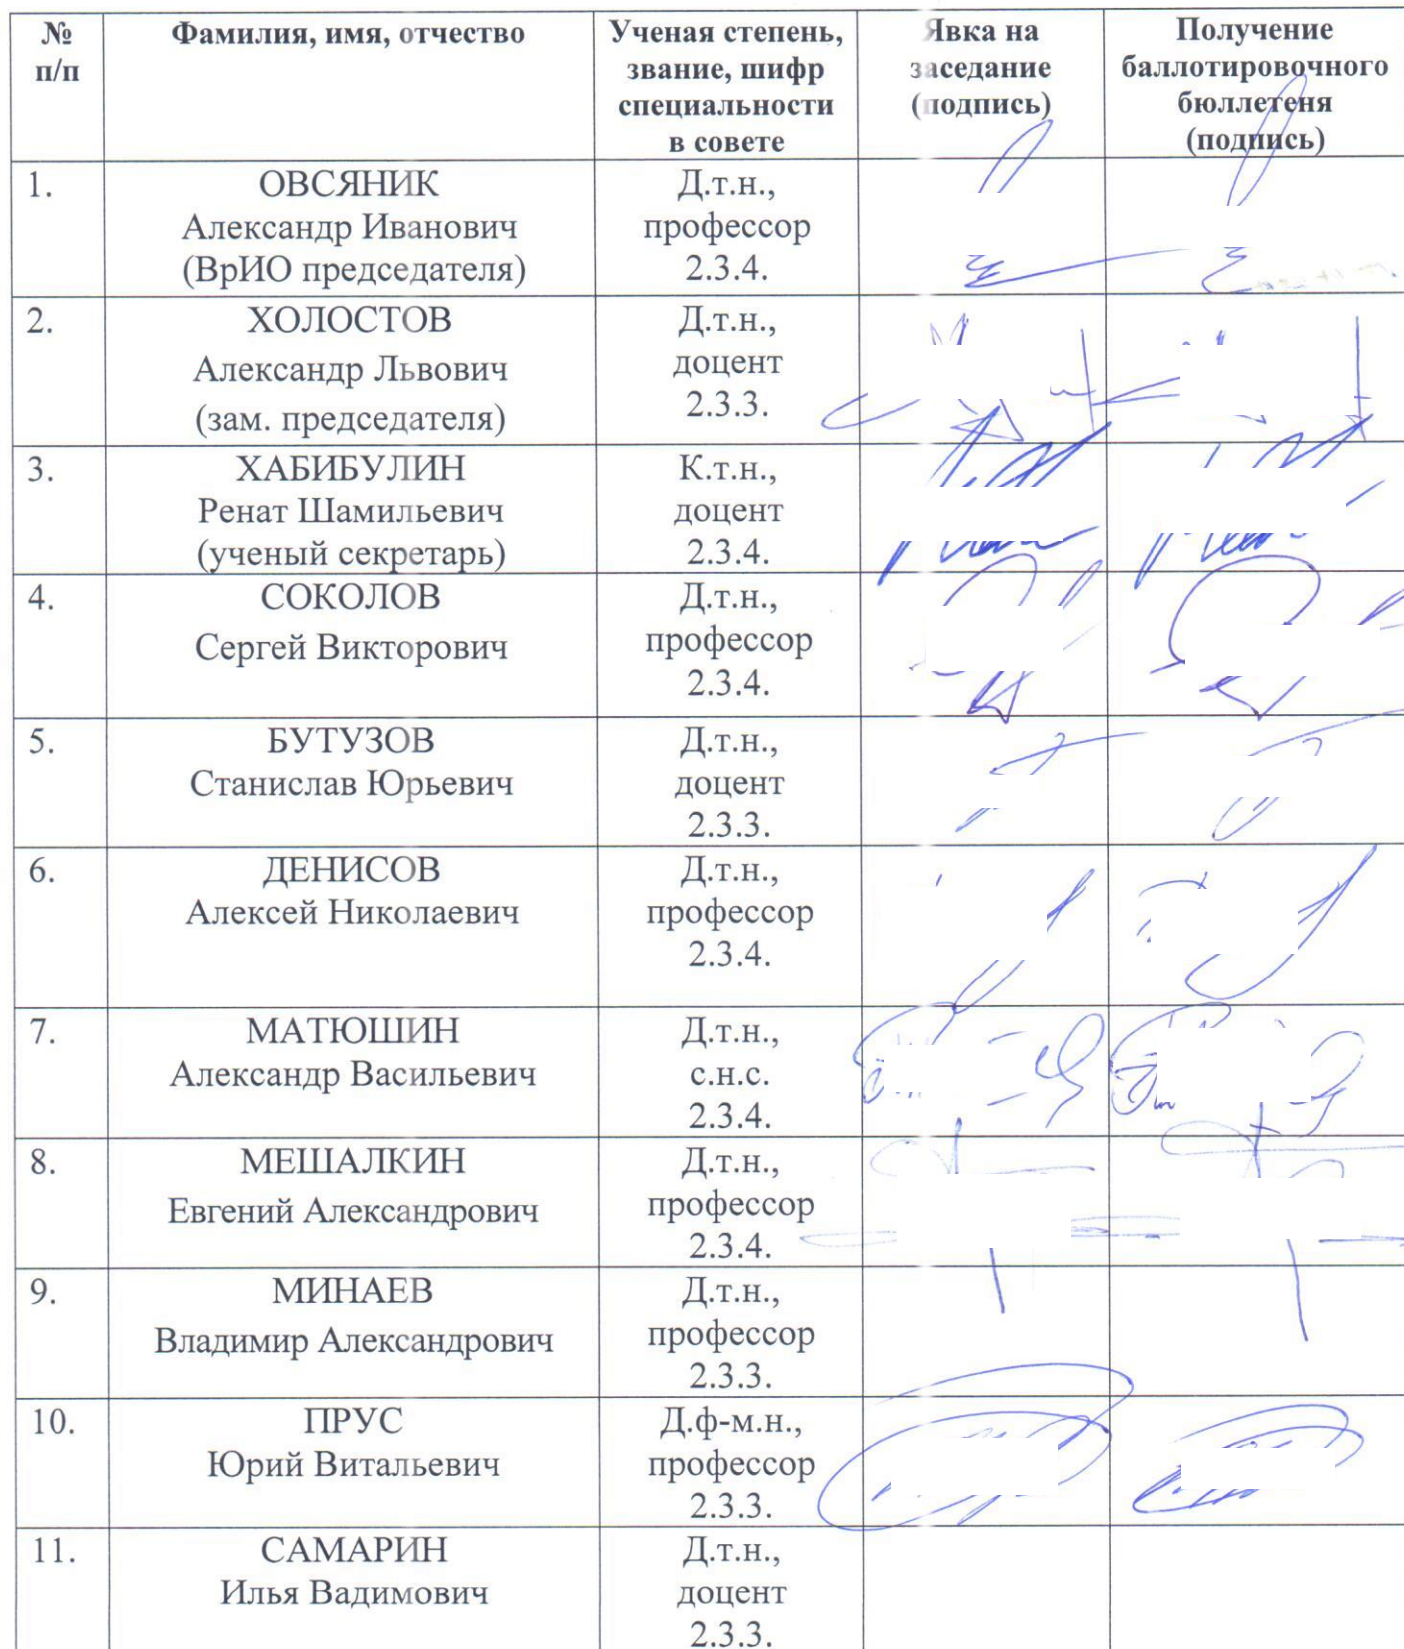 № п/п
Фамилия, имя, отчество
Ученая степень, звание, шифр специальности в совете
Явка на заседание (подпись)
Получение баллотировочного бюллетеня (подпись)
1.
ОВСЯНИК
Александр Иванович
(ВрИО председателя)
Д.т.н.,
профессор
2.3.4.
2.
ХОЛОСТОВ
Александр Львович
(зам. председателя)
Д.т.н.,
доцент
2.3.3.
3.
ХАБИБУЛИН
Ренат Шамильевич
(ученый секретарь)
К.т.н.,
доцент
2.3.4.
4.
СОКОЛОВ
Сергей Викторович
Д.т.н.,
профессор
2.3.4.
5.
БУТУЗОВ
Станислав Юрьевич
Д.т.н.,
доцент
2.3.3.
6.
ДЕНИСОВ
Алексей Николаевич
Д.т.н.,
профессор
2.3.4.
7.
МАТЮШИН
Александр Васильевич
Д.т.н.,
с.н.с.
2.3.4.
8.
МЕШАЛКИН
Евгений Александрович
Д.т.н.,
профессор
2.3.4.
9.
МИНАЕВ
Владимир Александрович
Д.т.н.,
профессор
2.3.3.
10.
ПРУС
Юрий Витальевич
Д.ф-м.н.,
профессор
2.3.3.
11.
САМАРИН
Илья Вадимович
Д.т.н.,
доцент
2.3.3.